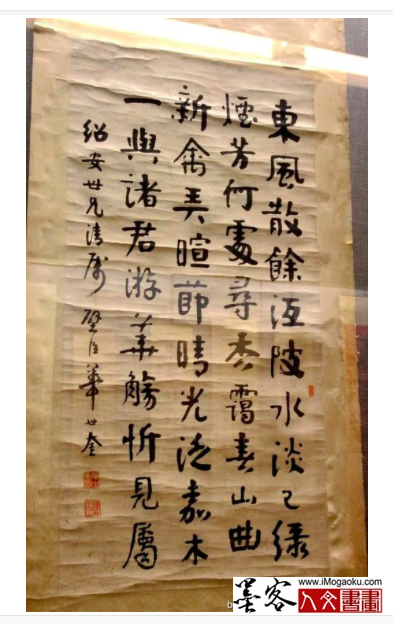 東風散餘沍陂水淡已緑
煙芳何處尋杳靄春山曲
新禽弄暄節晴光泛嘉木
一與諸君游華觴忻見屬
紹安世兄清属 璧臣華世奎
墨客
www.iMogaoku.com
人文書畫